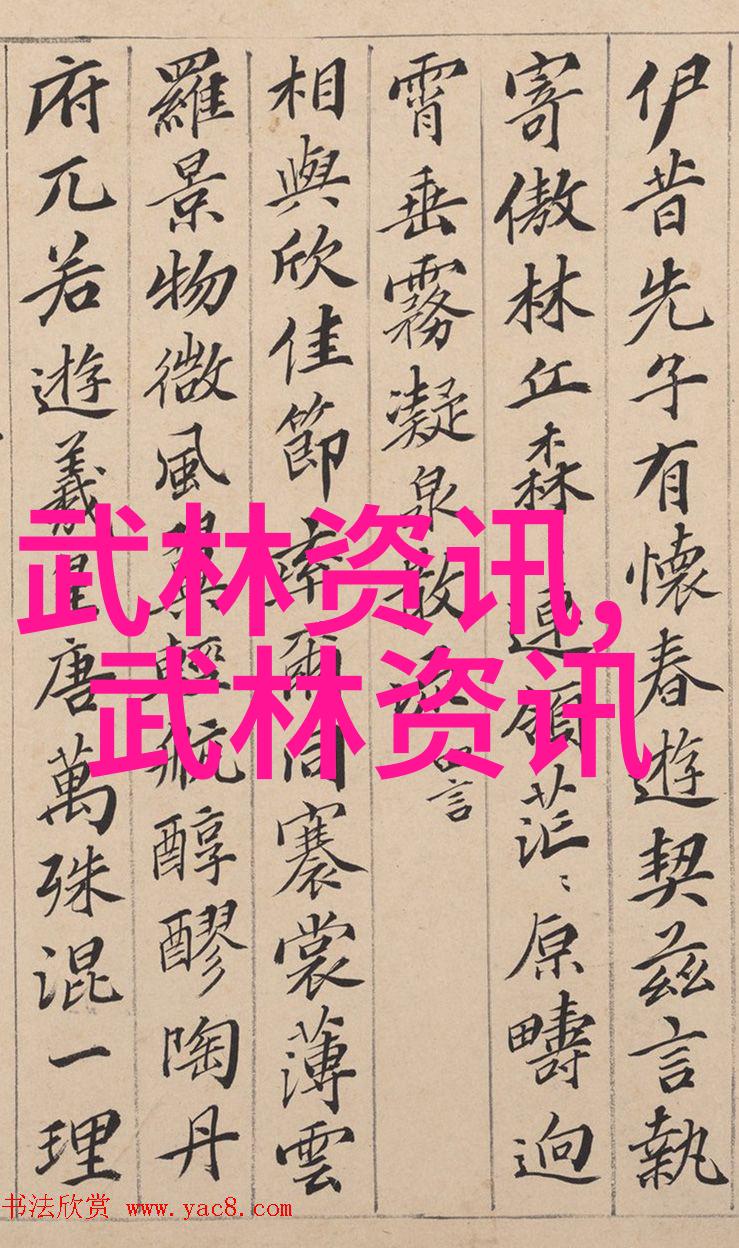 伊昔先子有懷春遊契茲言執
寄傲林丘森連領茫〻原疇逈
霄垂霧凝泉散言
相與欣佳節率爾同褰裳薄雲
羅景物微風翼輕航醇醪陶丹
府兀若遊羲唐萬殊混一理
武林资讯,
武林资讯
书法欣赏 www.yac8.com